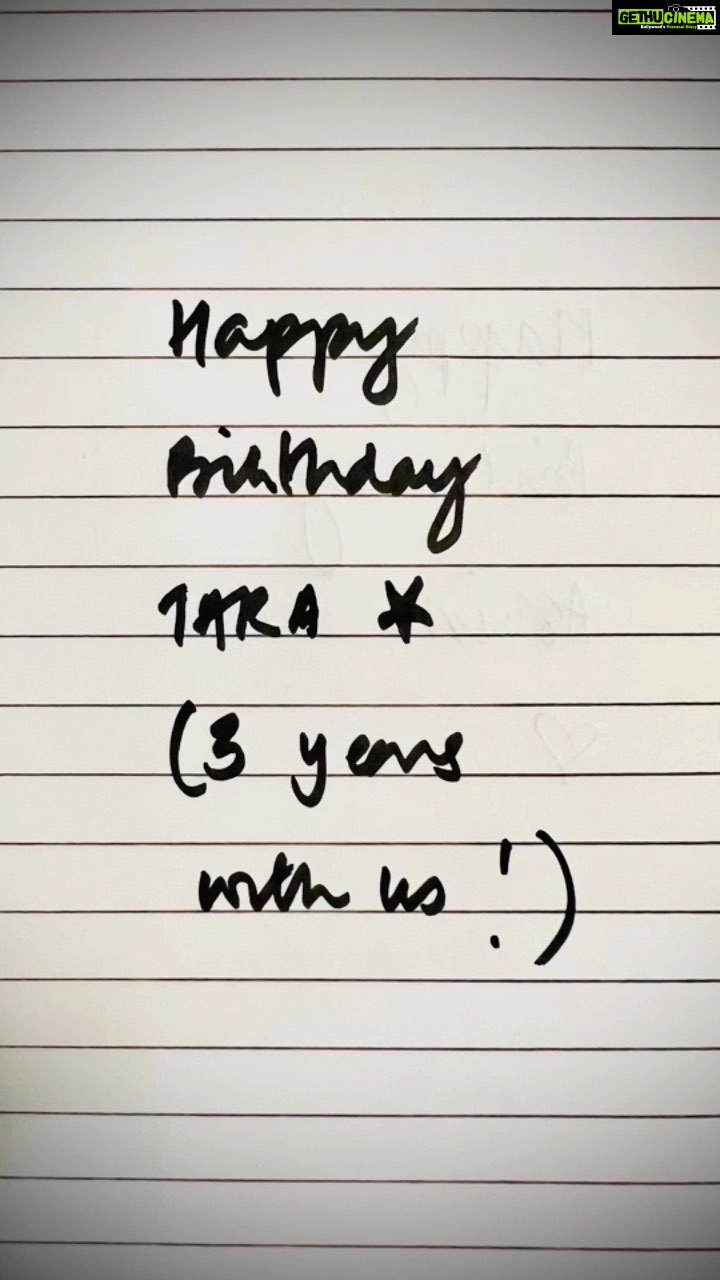 GETHUCINEMA
Kollywood's Personal Diary
Happy
Birthday
TARA *
(3 years
with us!)